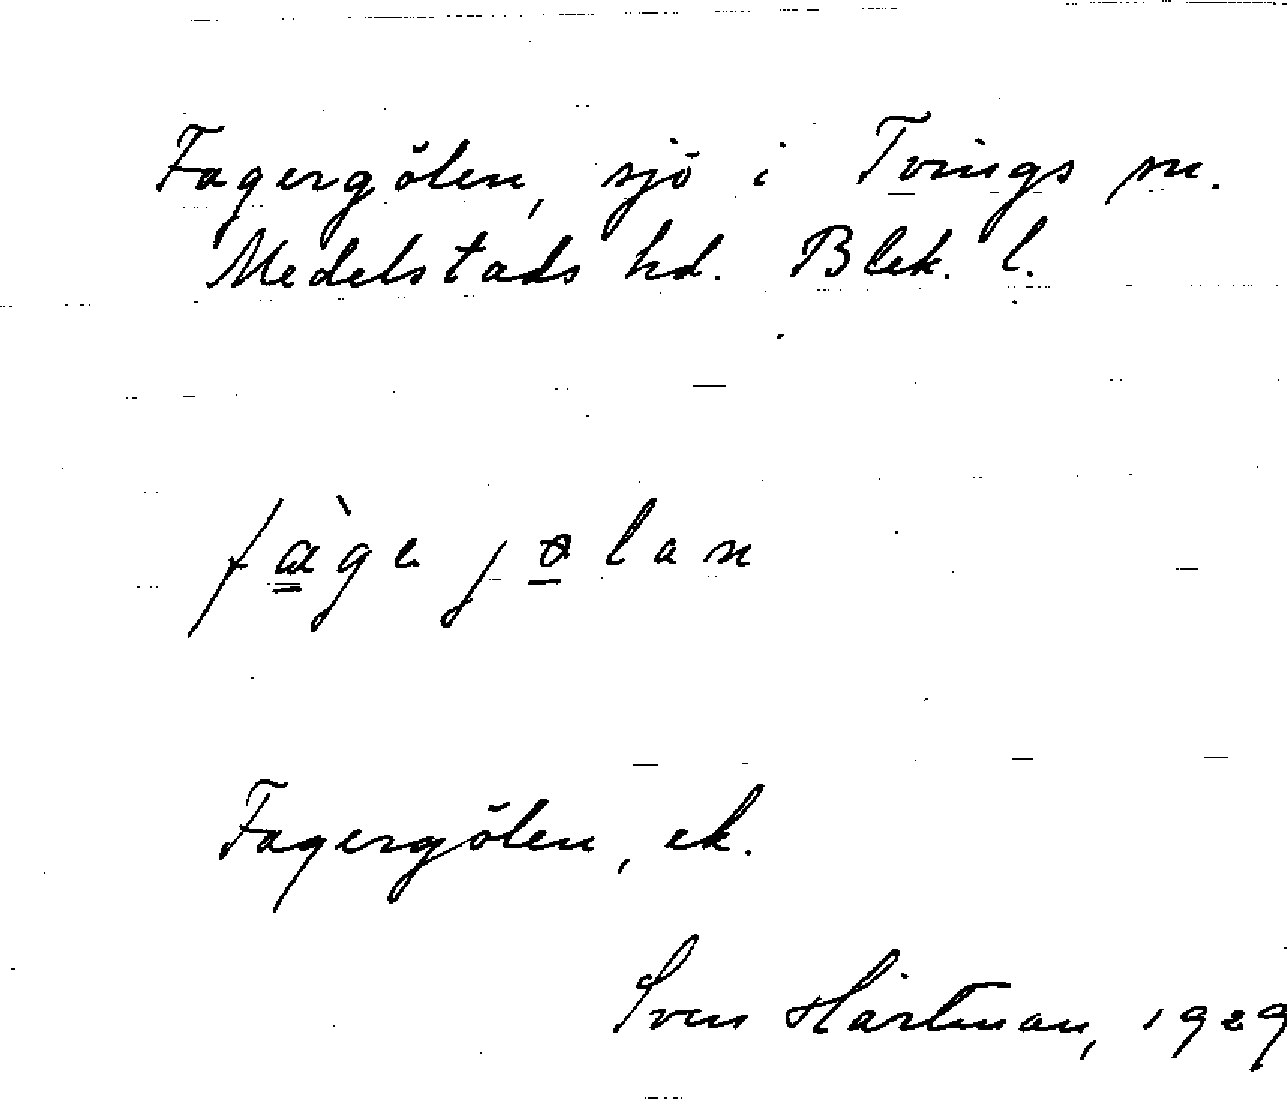 Fagergölen, sjö i Tvings sn.
Medelstads hd. Blek. l.
fàge jølan
Fagergölen, ek.
Sven Hartman, 1929